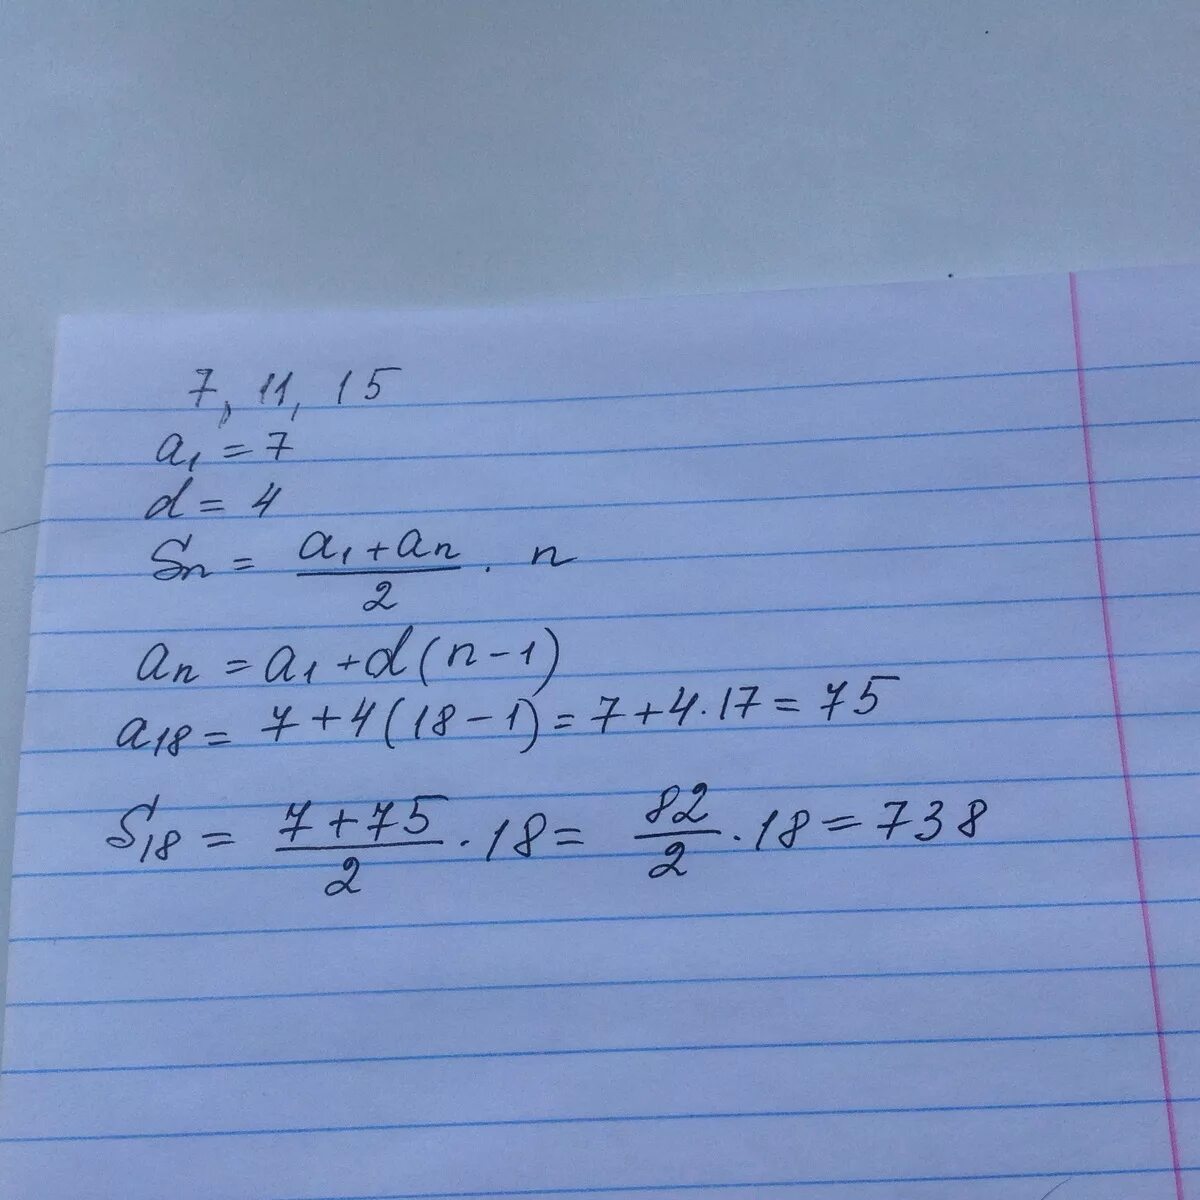 7, 11, 15
a₁ = 7
d = 4
Sn = (a₁ + an)/2 · n
an = a₁ + d(n - 1)
a₁₈ = 7 + 4(18 - 1) = 7 + 4 · 17 = 75
S₁₈ = (7 + 75)/2 · 18 = 82/2 · 18 = 738